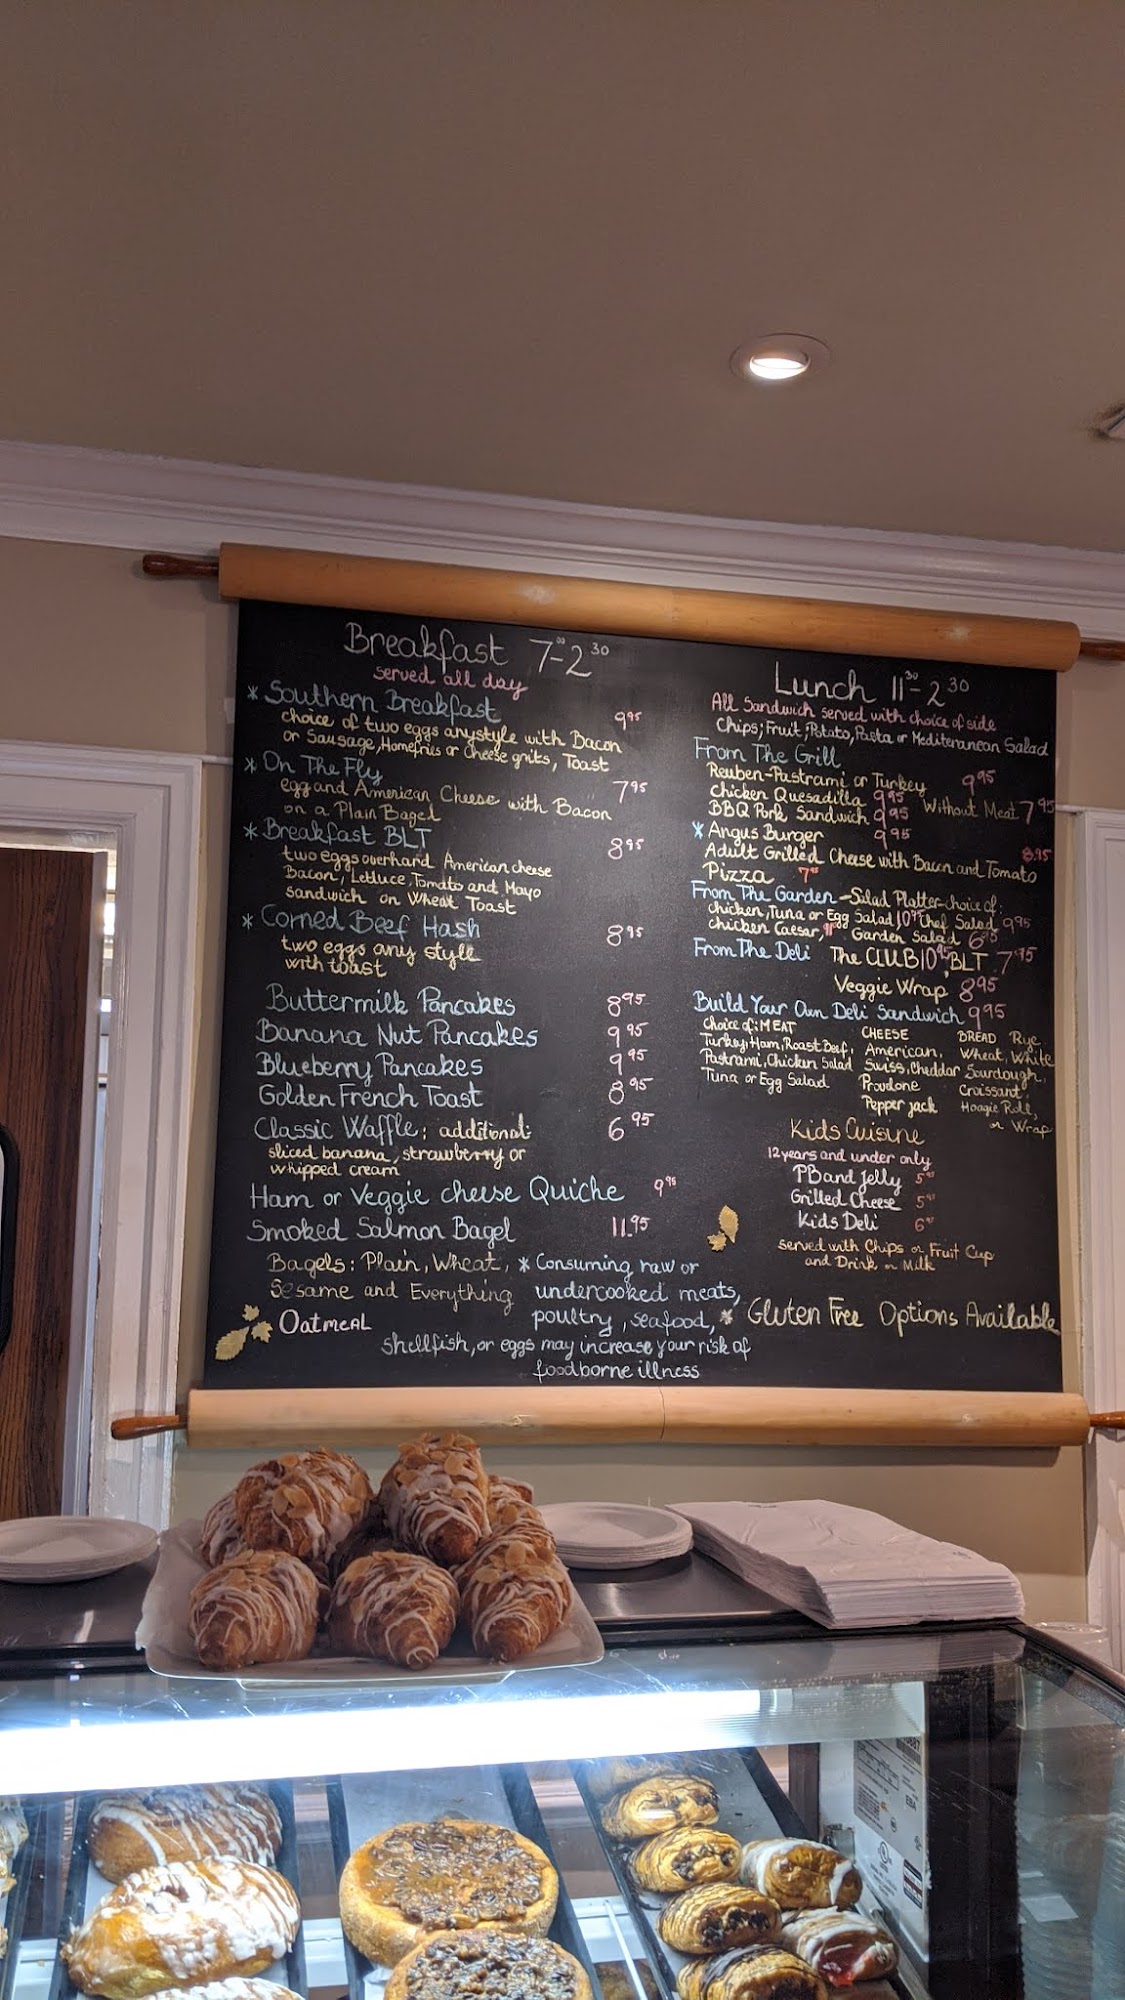 Breakfast 7⁰⁰-2³⁰
served all day
* Southern Breakfast 9⁹⁵
choice of two eggs anystyle with Bacon
or Sausage, Homefries or Cheese grits, Toast
* On The Fly 7⁹⁵
egg and American Cheese with Bacon
on a Plain Bagel
* Breakfast BLT 8⁹⁵
two eggs overhard American cheese
Bacon, Lettuce, Tomato and Mayo
sandwich on Wheat Toast
* Corned Beef Hash 8⁹⁵
two eggs any style
with toast
Buttermilk Pancakes 8⁹⁵
Banana Nut Pancakes 9⁹⁵
Blueberry Pancakes 9⁹⁵
Golden French Toast 8⁹⁵
Classic Waffle; additional: 6⁹⁵
sliced banana, strawberry or
whipped cream
Ham or Veggie cheese Quiche 9⁹⁵
Smoked Salmon Bagel 11.95
Bagels: Plain, Wheat,
Sesame and Everything
Oatmeal
* Consuming raw or
undercooked meats,
poultry, seafood,
shellfish, or eggs may increase your risk of
foodborne illness
Lunch 11³⁰-2³⁰
All Sandwich served with choice of side
Chips; Fruit; Potato, Pasta or Mediteranean Salad
From The Grill
Reuben-Pastrami or Turkey 9⁹⁵
Chicken Quesadilla 9⁹⁵ Without Meat 7⁹⁵
BBQ Pork Sandwich 9⁹⁵
* Angus Burger 9⁹⁵
Adult Grilled Cheese with Bacon and Tomato 8.95
Pizza
From The Garden - Salad Platter-choice of:
chicken, Tuna or Egg Salad, Chef Salad 9⁹⁵
chicken Caesar, Garden Salad
From The Deli The CLUB 10⁹⁵, BLT 7⁹⁵
Veggie Wrap 8⁹⁵
Build Your Own Deli Sandwich 9⁹⁵
Choice of: MEAT
Turkey, Ham, Roast Beef,
Pastrami, Chicken Salad
Tuna or Egg Salad
CHEESE
American,
Swiss, Cheddar
Provolone
Pepper jack
BREAD Rye
Wheat, White
Sourdough,
Croissant,
Hoagie Roll,
or Wrap
Kids Cuisine
12 years and under only
PB and Jelly
Grilled Cheese
Kids Deli
served with Chips or Fruit Cup
and Drink or Milk
* Gluten Free Options Available